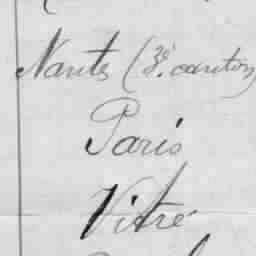 Nantes (3e. canton)
Paris
Vitré